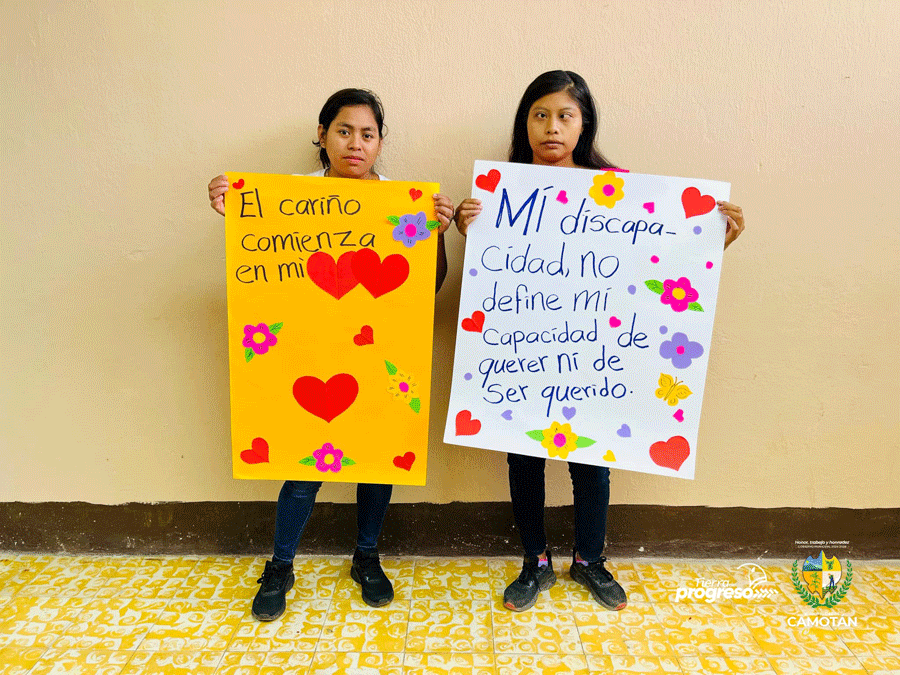 El cariño
comienza
en mi
Mí discapa-
cidad, no
define mí
capacidad de
querer ni de
ser querido.
Tierra
progreso
Honor, trabajo y honradez
CAMOTÁN